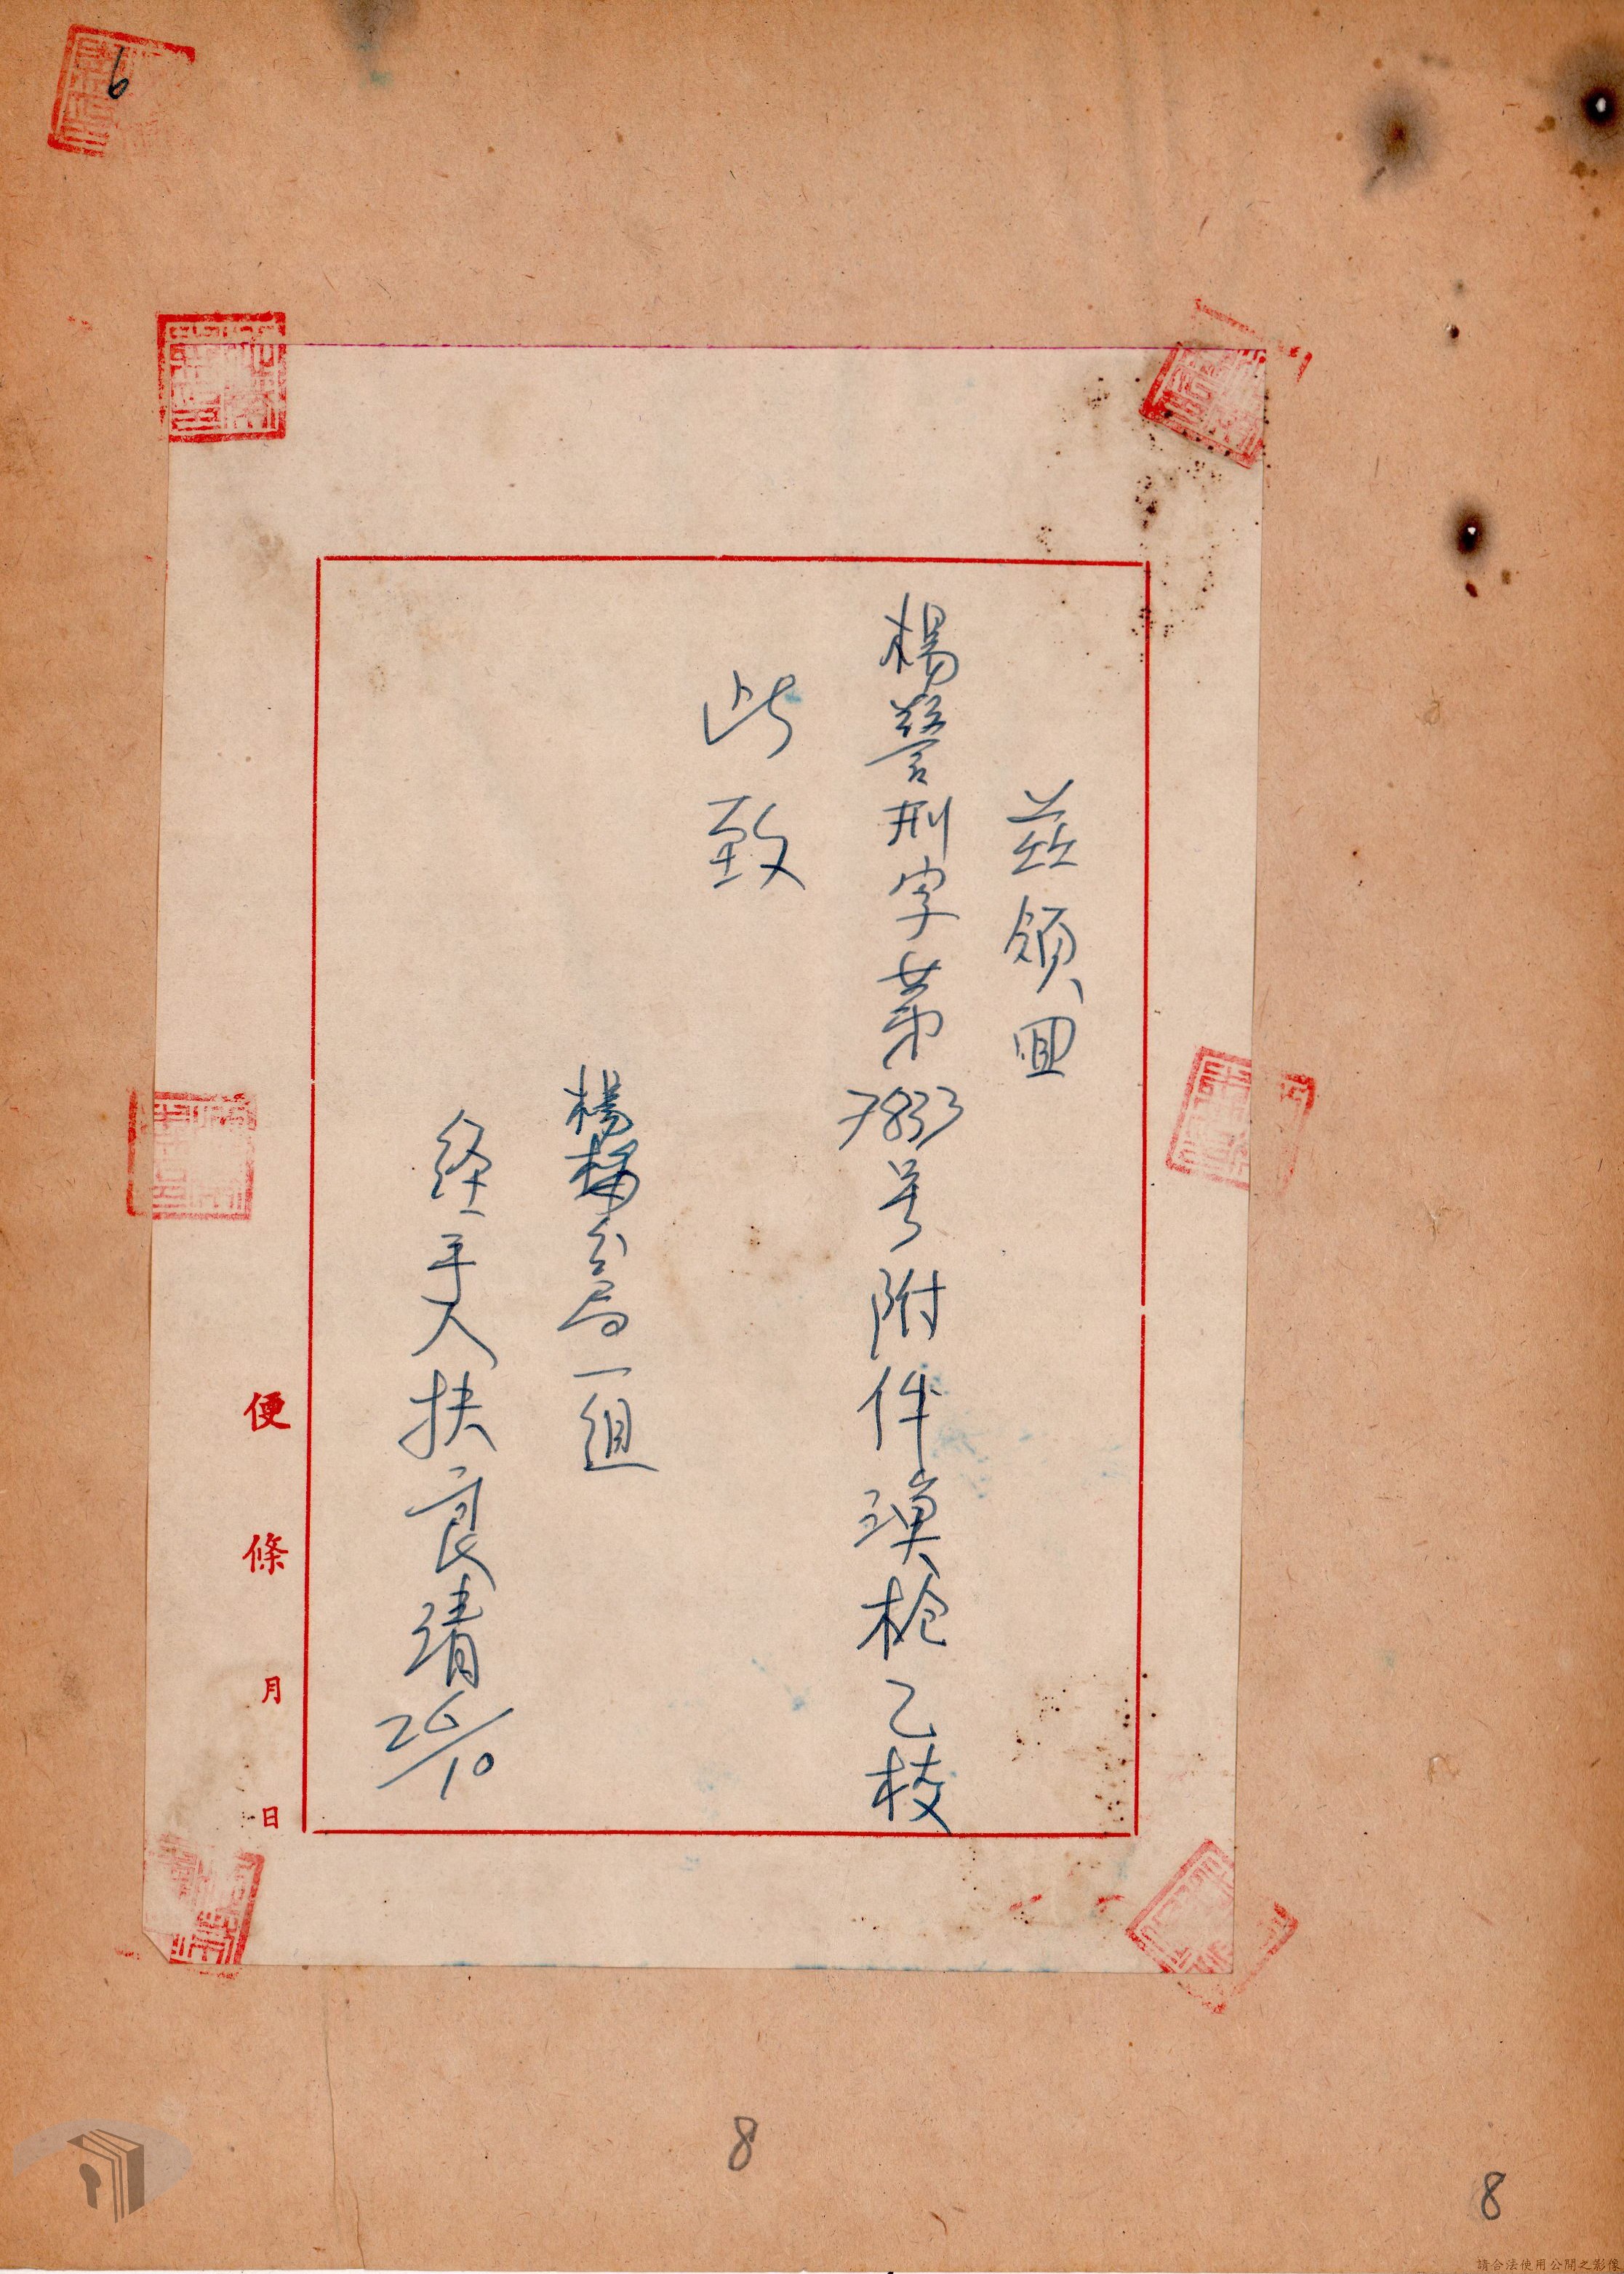 茲領回
楊警刑字第7833号附件璜枪乙枝
此致
楊梅分局一組
経手人扶良清26/10
便條 月 日
6
8
8
請合法使用公開之影像